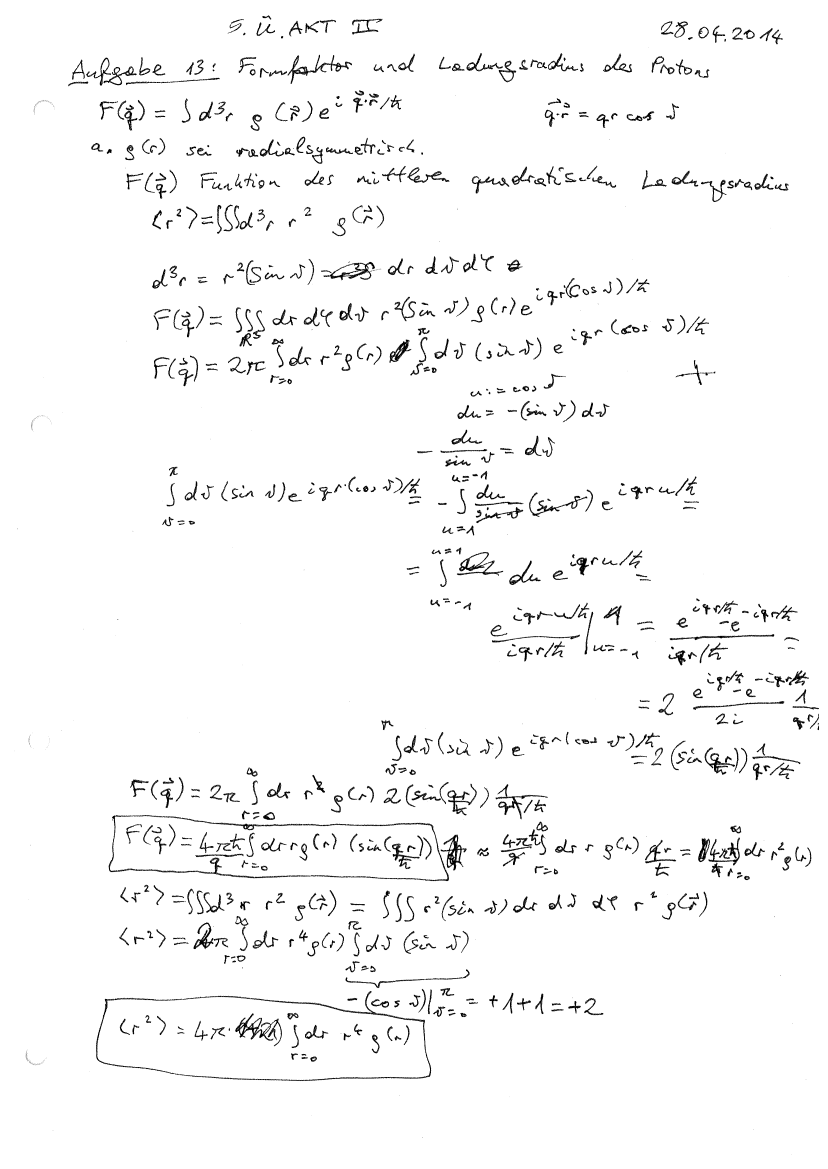 5. Ü. AKT II 28.04.2014
Aufgabe 13: Formfaktor und Ladungsradius des Protons
F(q⃗) = ∫ d³r ρ(r⃗) e^{i q⃗·r⃗/ħ} q⃗·r⃗ = qr cos ϑ
a. ρ(r) sei radialsymmetrisch.
F(q⃗) Funktion des mittleren quadratischen Ladungsradius
⟨r²⟩ = ∫∫∫ d³r r² ρ(r⃗)
d³r = r² (sin ϑ) dr dϑ dφ
F(q⃗) = ∫∫∫_{ℝ³} dr dφ dϑ r² (sin ϑ) ρ(r) e^{iqr(cos ϑ)/ħ}
F(q⃗) = 2π ∫_{r=0}^{∞} dr r² ρ(r) ∫_{ϑ=0}^{π} dϑ (sin ϑ) e^{iqr(cos ϑ)/ħ}
u := cos ϑ
du = -(sin ϑ) dϑ
-du/sin ϑ = dϑ
∫_{ϑ=0}^{π} dϑ (sin ϑ) e^{iqr(cos ϑ)/ħ} = -∫_{u=1}^{u=-1} du/sin ϑ (sin ϑ) e^{iqru/ħ} =
= ∫_{u=-1}^{u=1} du e^{iqru/ħ} =
e^{iqru/ħ}/(iqr/ħ) |_{u=-1}^{1} = (e^{iqr/ħ} - e^{-iqr/ħ})/(iqr/ħ) =
= 2 (e^{iqr/ħ} - e^{-iqr/ħ})/2i 1/(qr/ħ)
∫_{ϑ=0}^{π} dϑ (sin ϑ) e^{iqr(cos ϑ)/ħ} = 2 (sin(qr/ħ)) 1/(qr/ħ)
F(q⃗) = 2π ∫_{r=0}^{∞} dr r² ρ(r) 2 (sin(qr/ħ)) 1/(qr/ħ)
F(q⃗) = 4πħ/q ∫_{r=0}^{∞} dr r ρ(r) (sin(qr/ħ)) ≈ 4πħ/q ∫_{r=0}^{∞} dr r ρ(r) qr/ħ = 4π ∫_{r=0}^{∞} dr r² ρ(r)
⟨r²⟩ = ∫∫∫ d³r r² ρ(r⃗) = ∫∫∫ r² (sin ϑ) dr dϑ dφ r² ρ(r⃗)
⟨r²⟩ = 2π ∫_{r=0}^{∞} dr r⁴ ρ(r) ∫_{ϑ=0}^{π} dϑ (sin ϑ)
-(cos ϑ)|_{ϑ=0}^{π} = +1+1 = +2
⟨r²⟩ = 4π · ∫_{r=0}^{∞} dr r⁴ ρ(r)